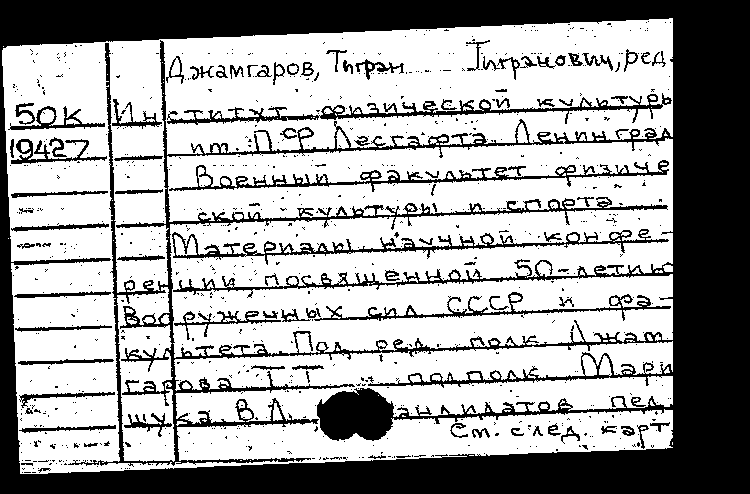 Джамгаров, Тигран Тигранович, ред.
50К Институт физической культуры
19427 им. П Ф Лесгафта. Ленинград
Военный факультет физиче
ской культуры и спорта.
Материалы научной конфе-
ренции посвященной 50-летию
Вооруженных сил СССР и фа-
культета. Под ред. полк. Джам
гарова Т Т и подполк. Мари
щука В.Л. кандидатов пед.
См. след. карт